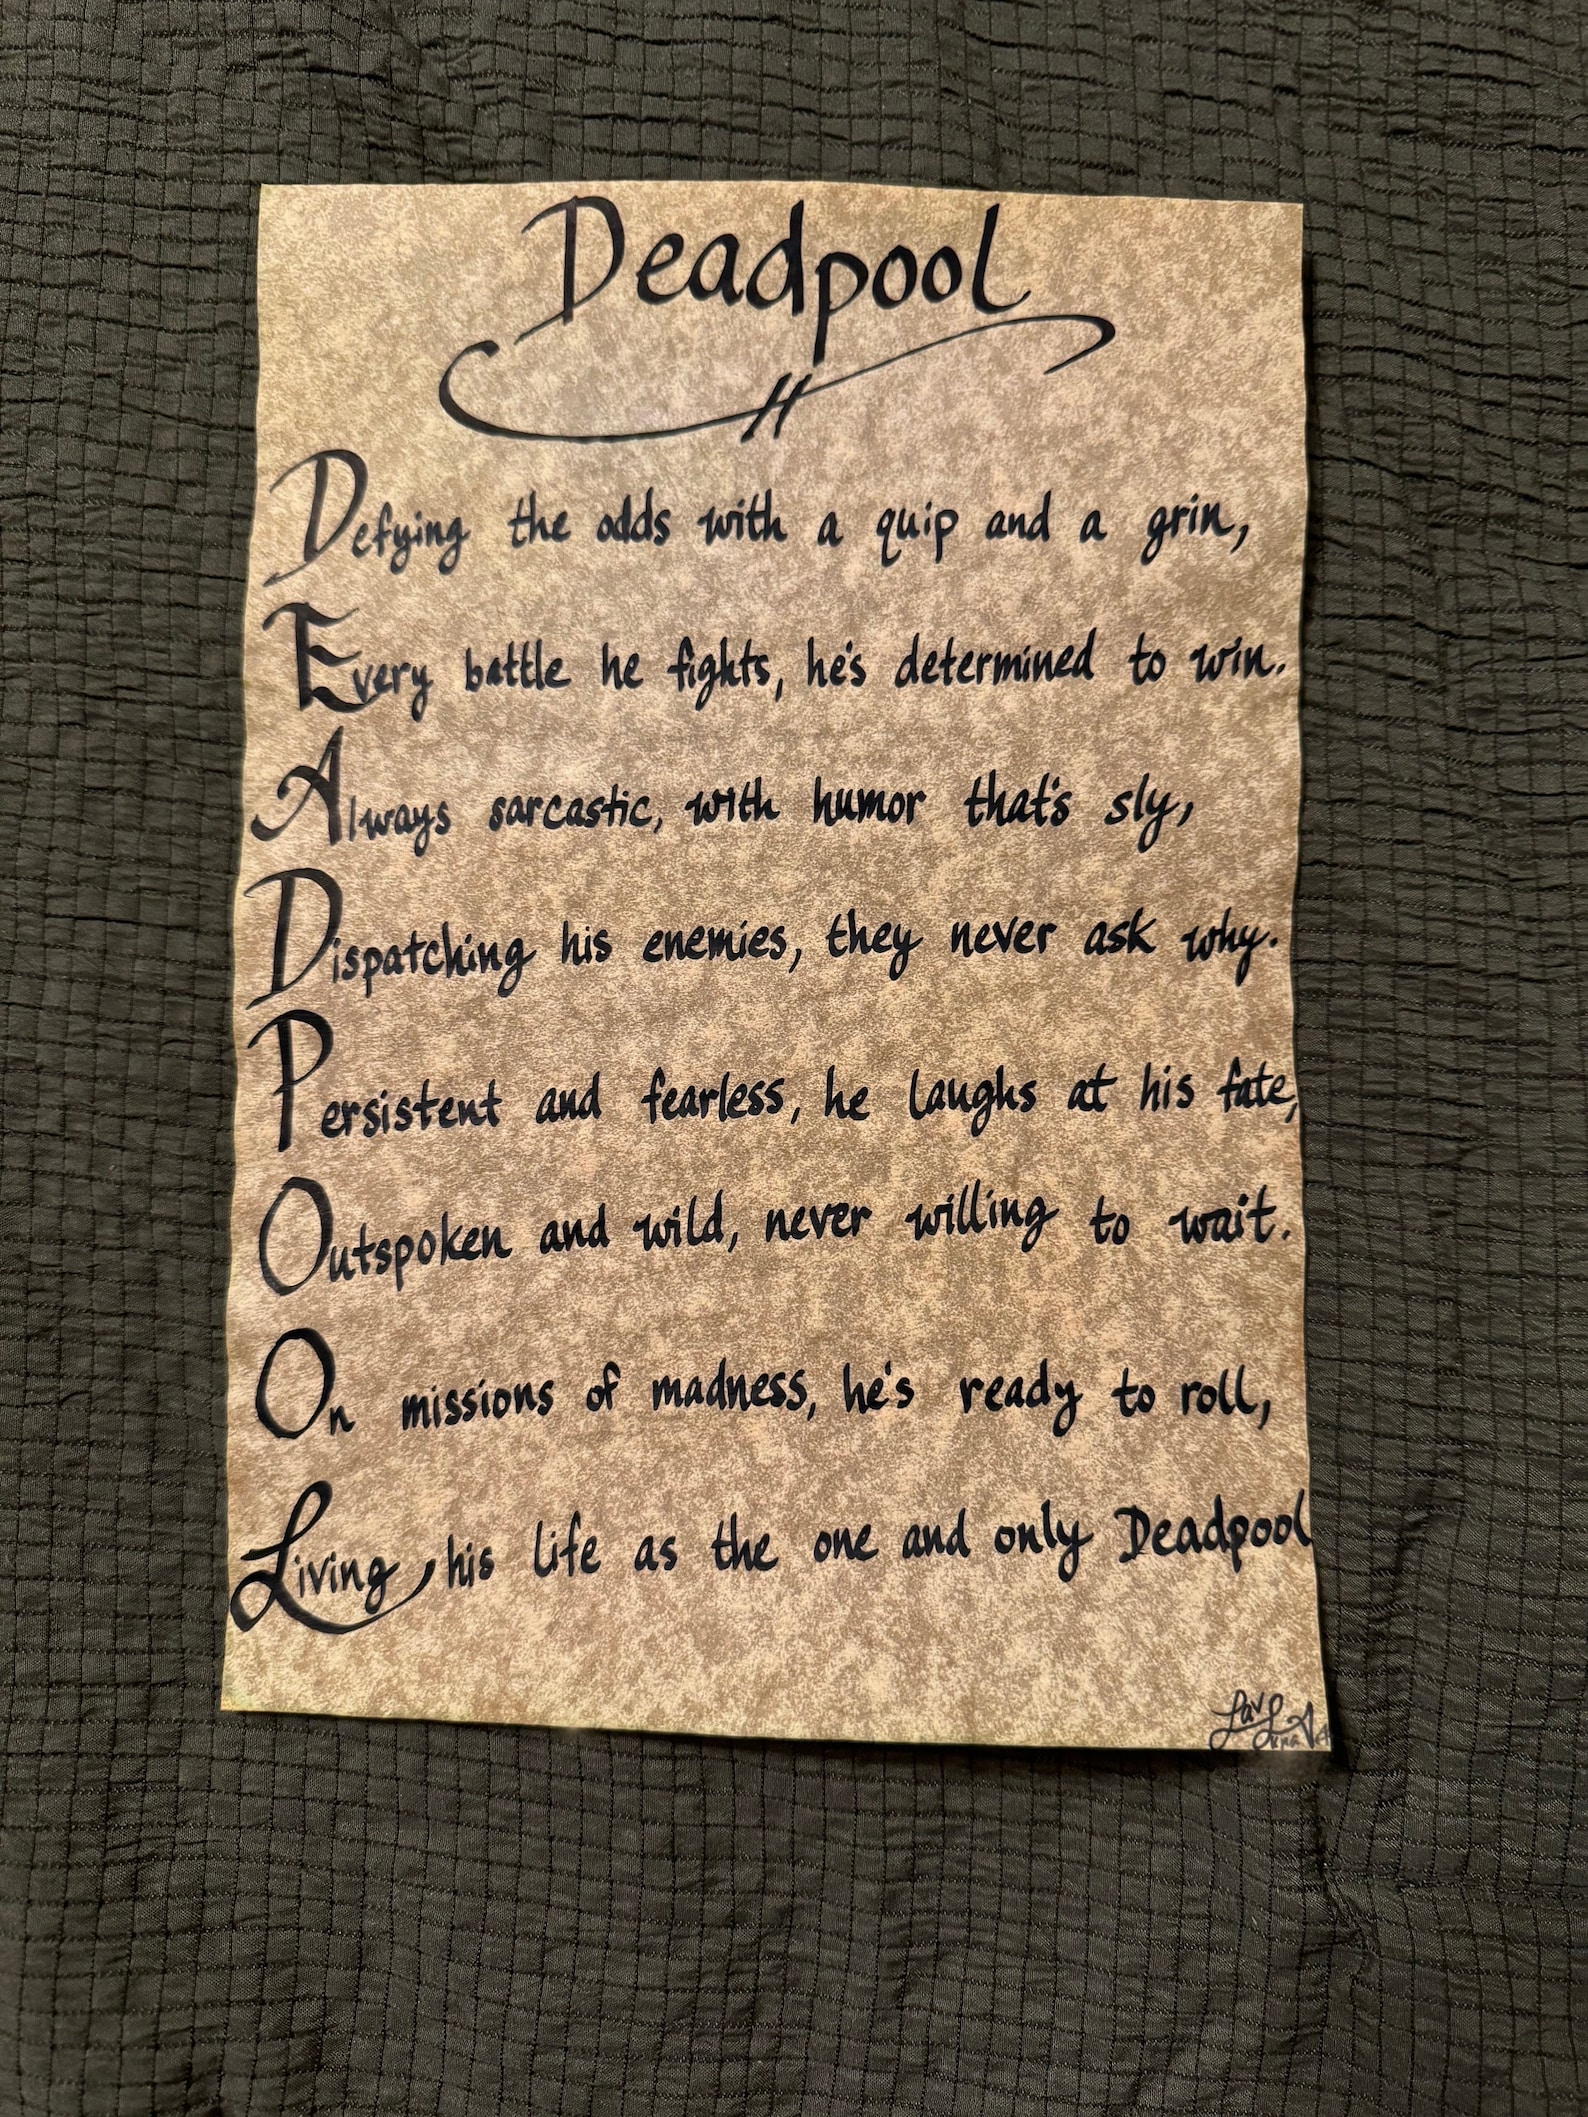 Deadpool
Defying the odds with a quip and a grin,
Every battle he fights, he's determined to win.
Always sarcastic, with humor that's sly,
Dispatching his enemies, they never ask why.
Persistent and fearless, he laughs at his fate,
Outspoken and wild, never willing to wait.
On missions of madness, he's ready to roll,
Living his life as the one and only Deadpool
Lav
Luna Art